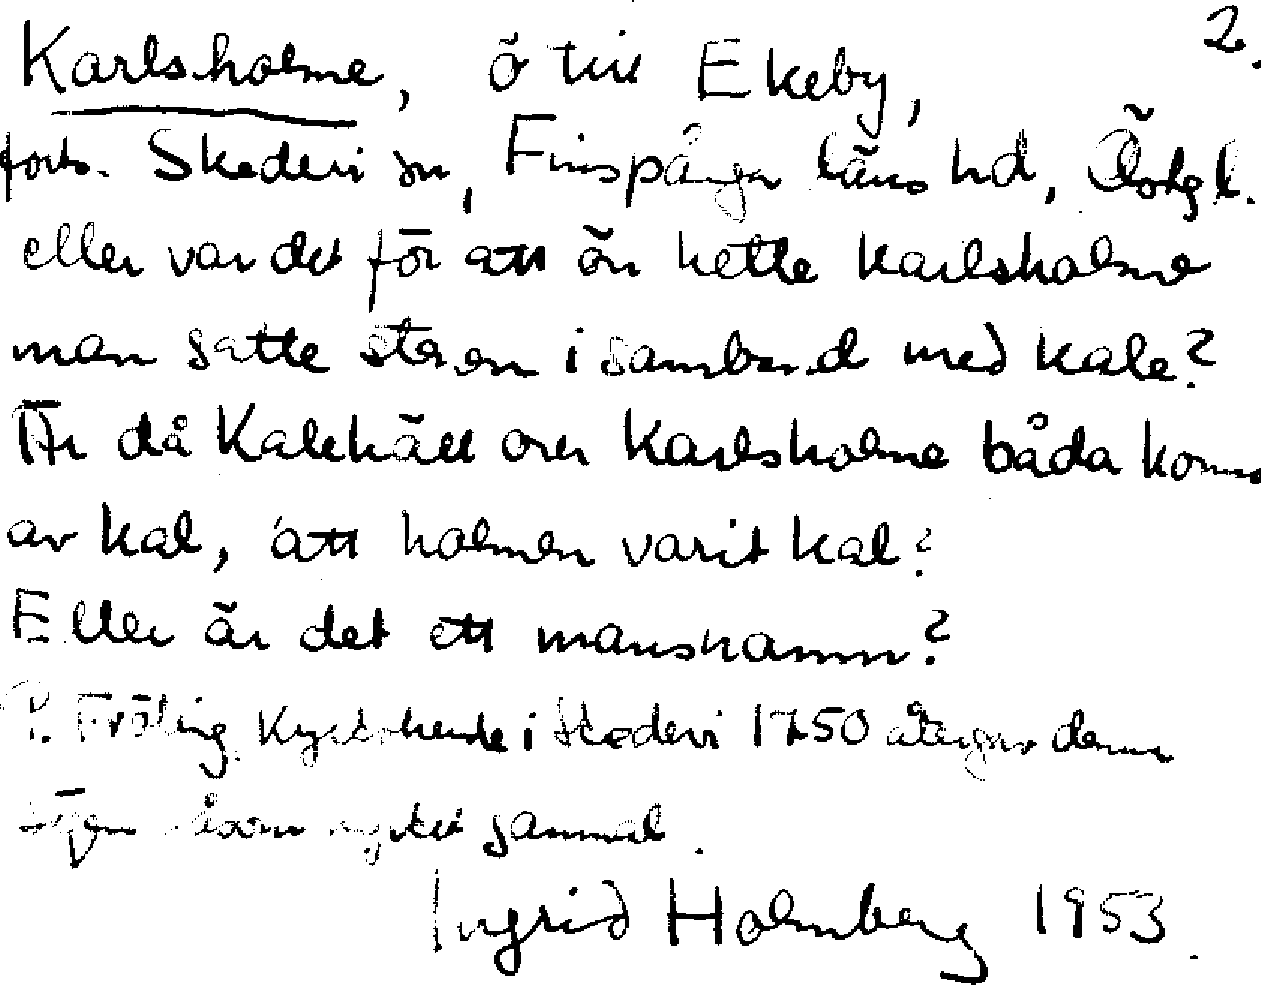 2.
Karlsholme, ö till Ekeby,
forts. Skedevi sn, Finspånga läns hd, Östgl.
eller var det för att ön hette Karlsholme
man satte stenen i samband med kale?
Är då Kalehäll over Karlsholme båda komna
av kal, att holmen varit kal?
Eller är det ett mansnamn?
P. Fröling, Kyrkoherde i Skedevi 1750 återger denna
sägen såsom mycket gammal.
Ingrid Holmberg 1953.